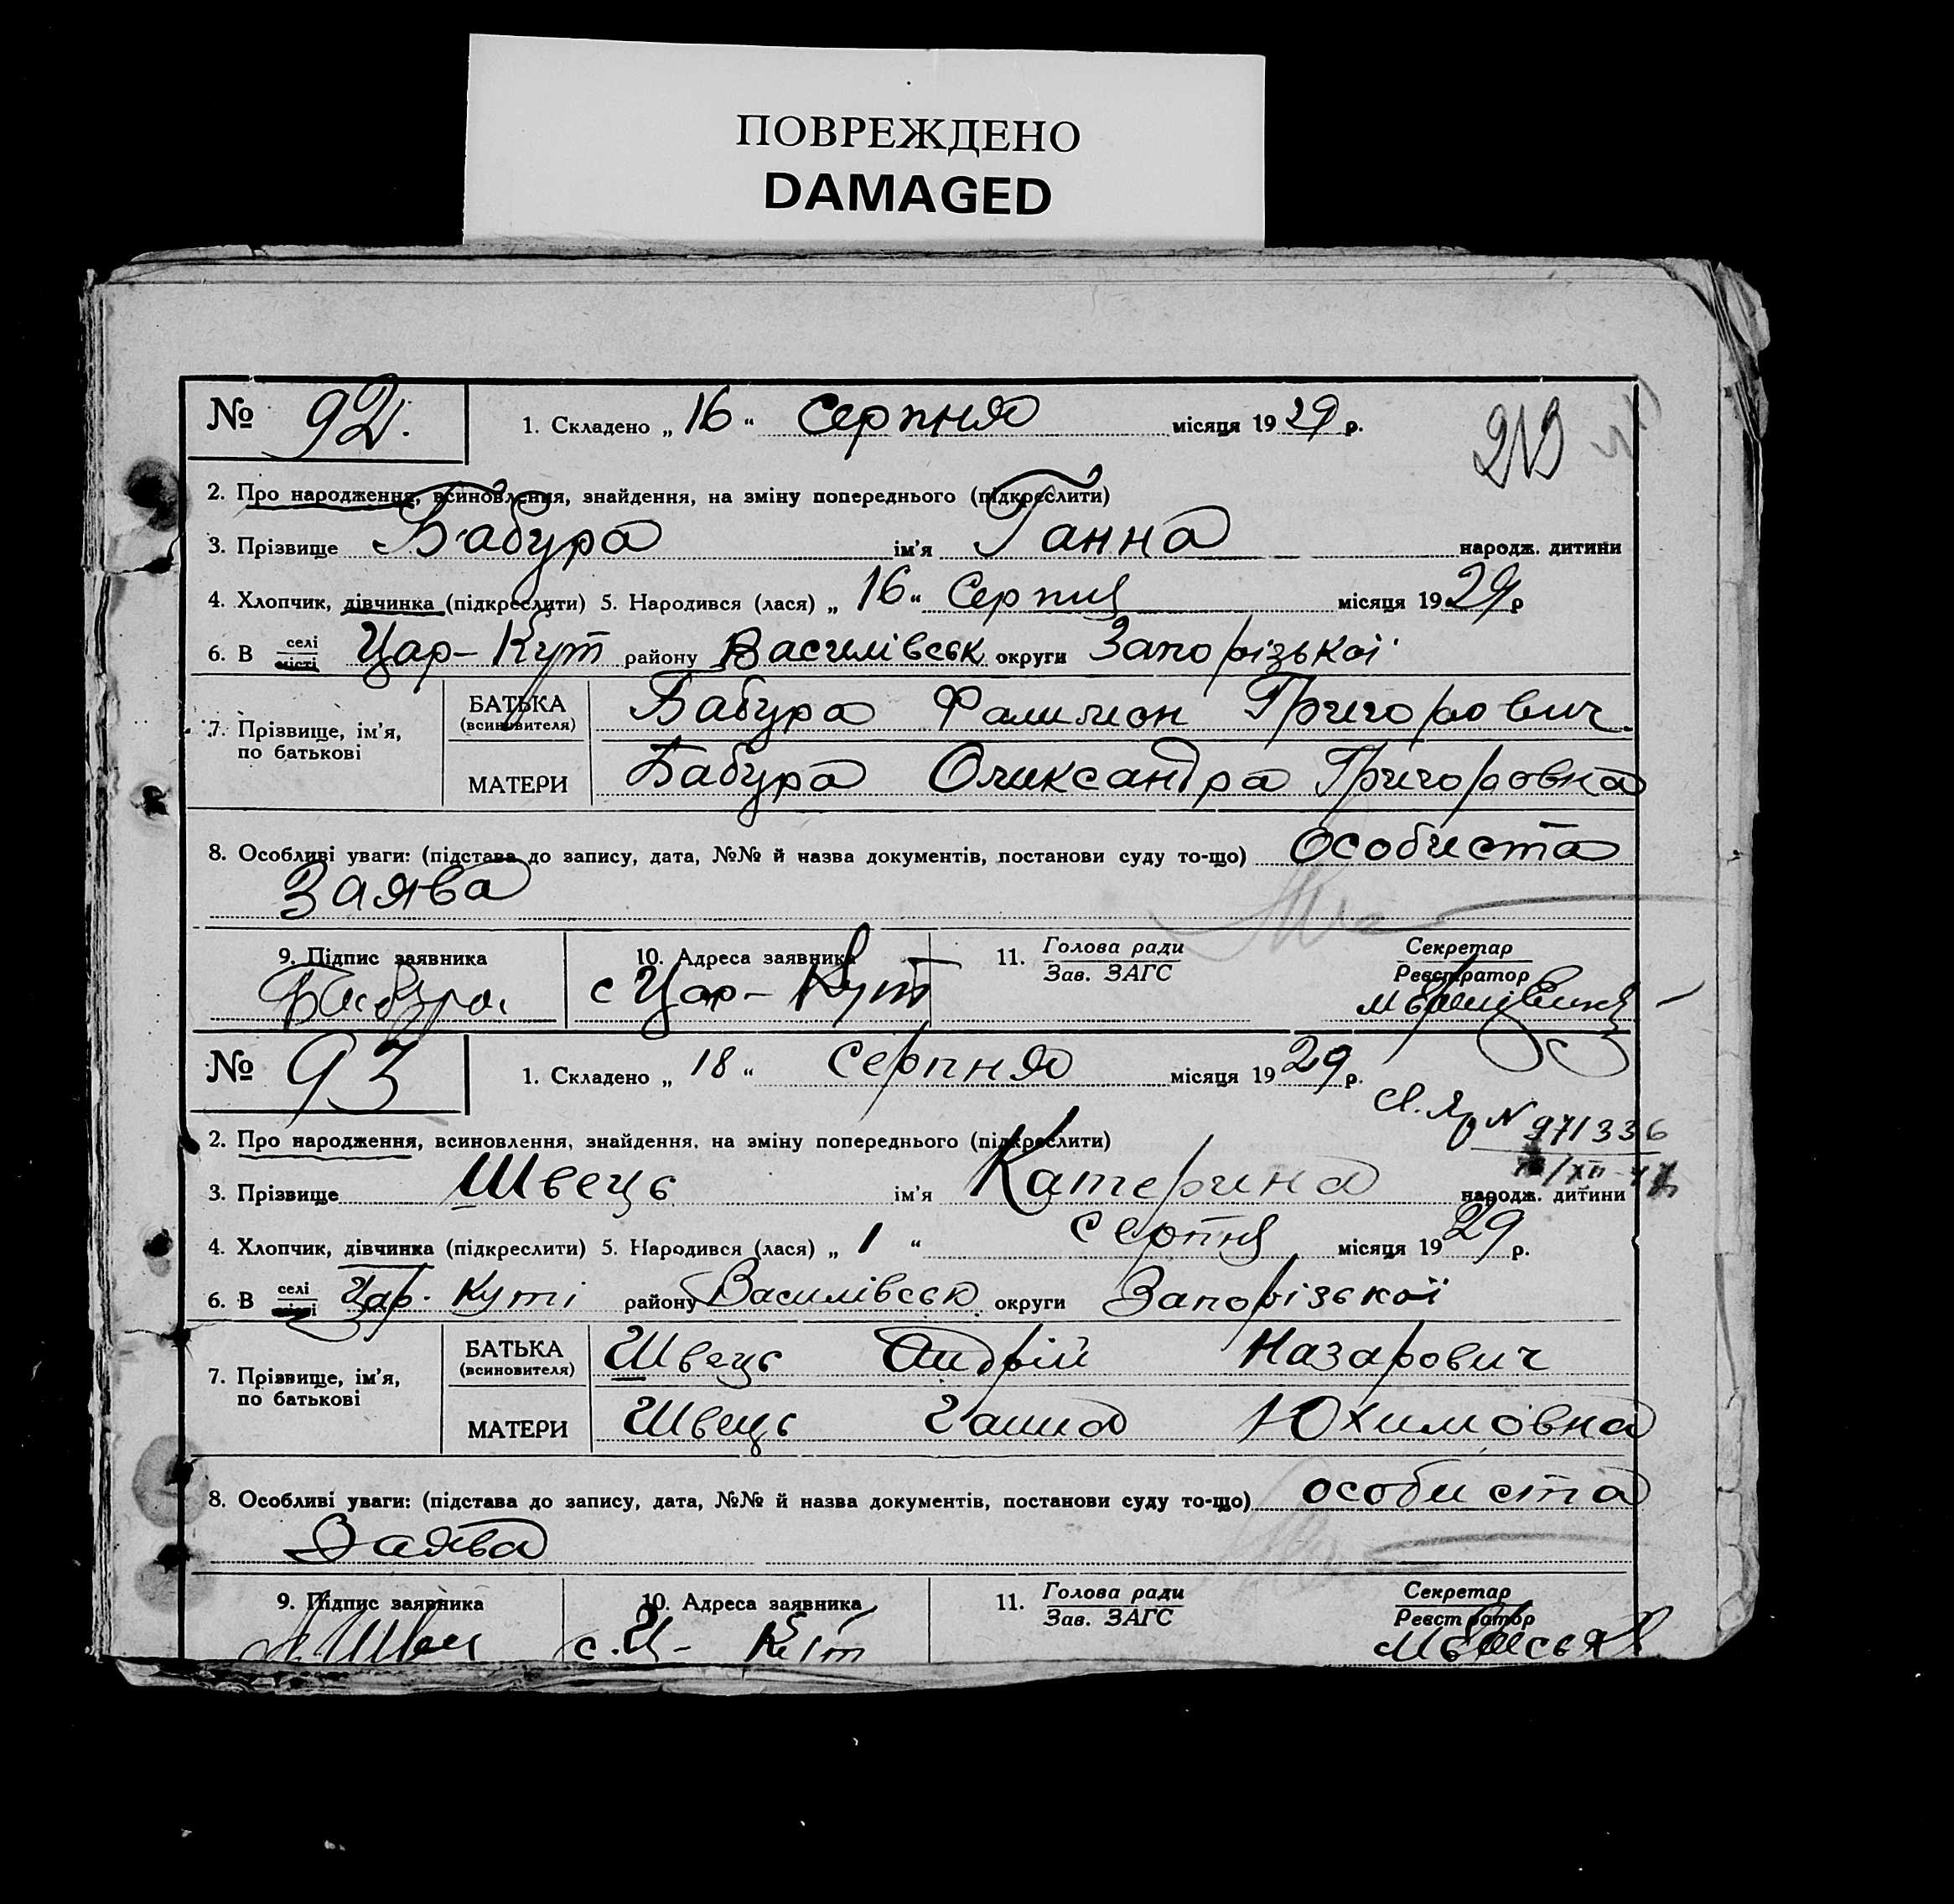 ПОВРЕЖДЕНО
DAMAGED
№ 92. 1. Складено „ 16 “ Серпня місяця 19 29 р.
213
2. Про народження, всиновлення, знайдення, на зміну попереднього (підкреслити)
3. Прізвище Бабура ім'я Ганна народж. дитини
4. Хлопчик, дівчинка (підкреслити) 5. Народився (лася) „ 16 “ Серпня місяця 19 29 р
6. В селі місті Цар-Кут району Василівськ округи Запорізької
7. Прізвище, ім'я, по батькові
БАТЬКА (всиновителя) Бабура Филимон Григорович
МАТЕРИ Бабура Олександра Григоровна
8. Особливі уваги: (підстава до запису, дата, №№ й назва документів, постанови суду то-що) Особиста
Заява
9. Підпис заявника 10. Адреса заявника 11. Голова ради Секретар
Зав. ЗАГС Реєстратор
Бабура с Цар-Кут
№ 93 1. Складено „ 18 “ Серпня місяця 19 29 р.
N 971336
2. Про народження, всиновлення, знайдення, на зміну попереднього (підкреслити)
3. Прізвище Швець ім'я Катерина народж. дитини
4. Хлопчик, дівчинка (підкреслити) 5. Народився (лася) „ 1 “ Серпня місяця 19 29 р.
6. В селі місті Цар-Куті району Василівськ округи Запорізської
7. Прізвище, ім'я, по батькові
БАТЬКА (всиновителя) Швець Андрій Назарович
МАТЕРИ Швець Ганна Юхимовна
8. Особливі уваги: (підстава до запису, дата, №№ й назва документів, постанови суду то-що) особиста
Заява
9. Підпис заявника 10. Адреса заявника 11. Голова ради Секретар
Зав. ЗАГС Реєстратор
с. Ц- Кут